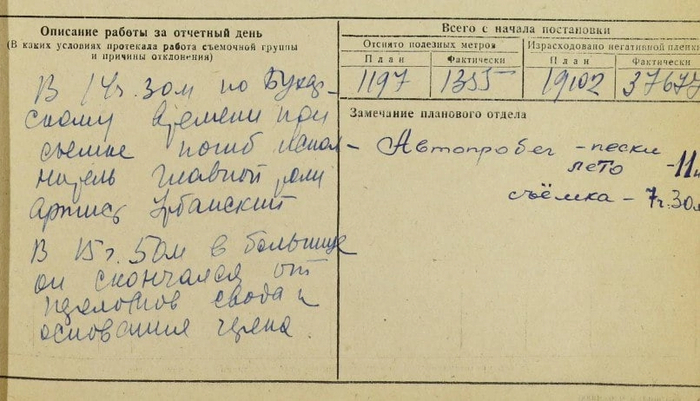 Описание работы за отчетный день
(В каких условиях протекала работа съемочной группы
и причины отклонения)
В 14ч. 30м по Бухар-
скому времени при
съемке погиб испол-
нитель главной роли
артист Урбанский
В 15ч. 50м в больнице
он скончался от
переломов свода и
основания черепа.
Всего с начала постановки
Отснято полезных метров
Израсходовано негативной пленки
План
Фактически
План
Фактически
1197
1355
19102
Замечание планового отдела
Автопробег - пески
лето - 11
съёмка - 7ч. 30м